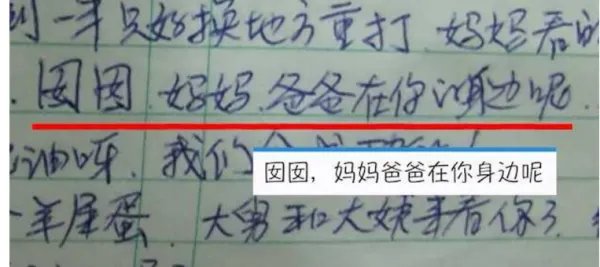 一半只好换地方重打 妈妈看的
囡囡 妈妈 爸爸在你身边呢
油呀. 我们
囡囡，妈妈爸爸在你身边呢
羊屎蛋. 大舅和大姨来看你了